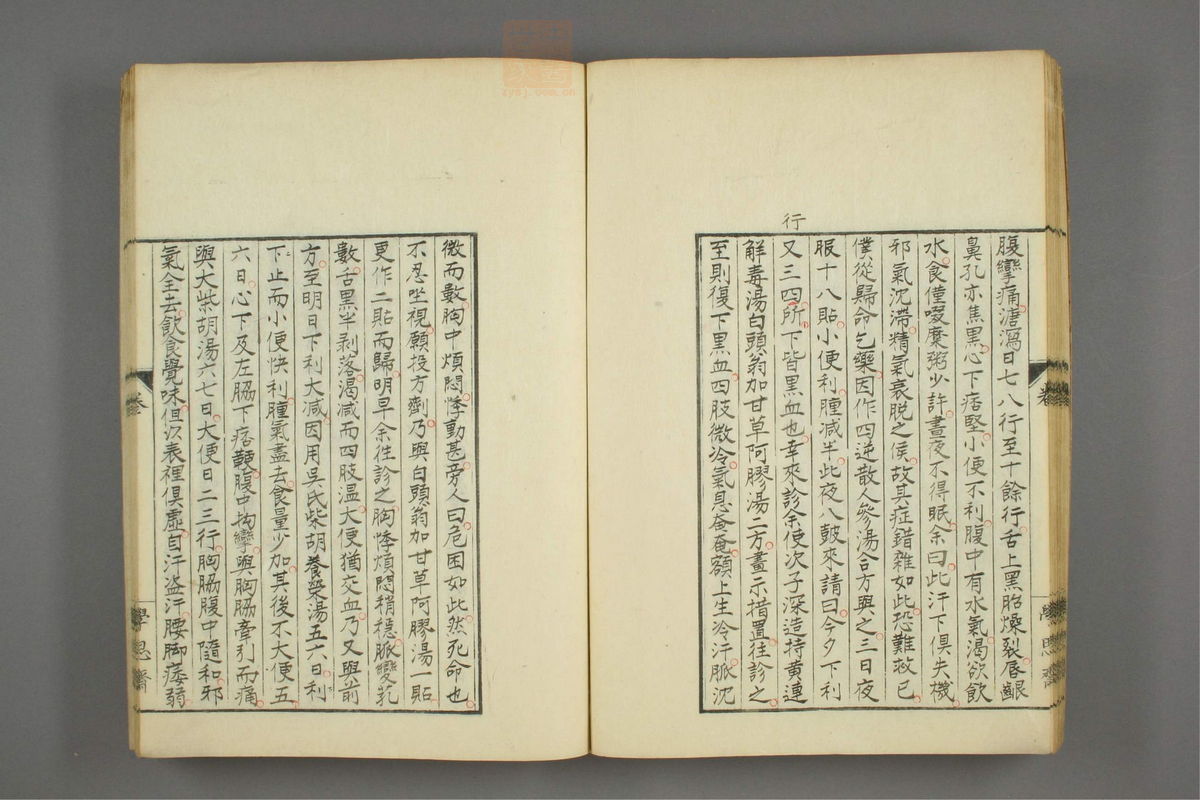 腹攣痛溏瀉日七八行至十餘行舌上黑胎燥裂唇齦
鼻孔亦焦黑心下痞堅小便不利腹中有水氣渴欲飲
水食僅啜糜粥少許晝夜不得眠余曰此汗下俱失機
邪氣沈滯精氣衰脫之候故其症錯雜如此恐難救已
僕從歸命乞藥因作四逆散人參湯合方與之三日夜
服十八貼小便利腫減半此夜八鼓來請曰今夕下利
行
又三四所下皆黑血也幸來診余使次子深造持黄連
解毒湯白頭翁加甘草阿膠湯二方畫示措置往診之
至則復下黑血四肢微冷氣息奄奄額上生冷汗脈沈
微而數胸中煩悶悸動甚旁人曰危困如此然死命也
不忍坐視願投方劑乃與白頭翁加甘草阿膠湯一貼
更作二貼而歸明早余往診之胸悸煩悶稍穩脈變乳
數舌黑半剥落渴減而四肢温大便猶交血乃又與前
方至明日下利大減因用吳氏柴胡養榮湯五六日利
下止而小便快利腫氣盡去食量少加其後不大便五
六日心下及左脇下痞鞕腹中拘攣與胸脇牽引而痛
與大柴胡湯六七日大便日二三行胸脇腹中隨和邪
氣全去飲食覺味但以表裡俱虛自汗盗汗腰脚痿弱
卷
學思齋
卷
學思齋
zysj.com.cn